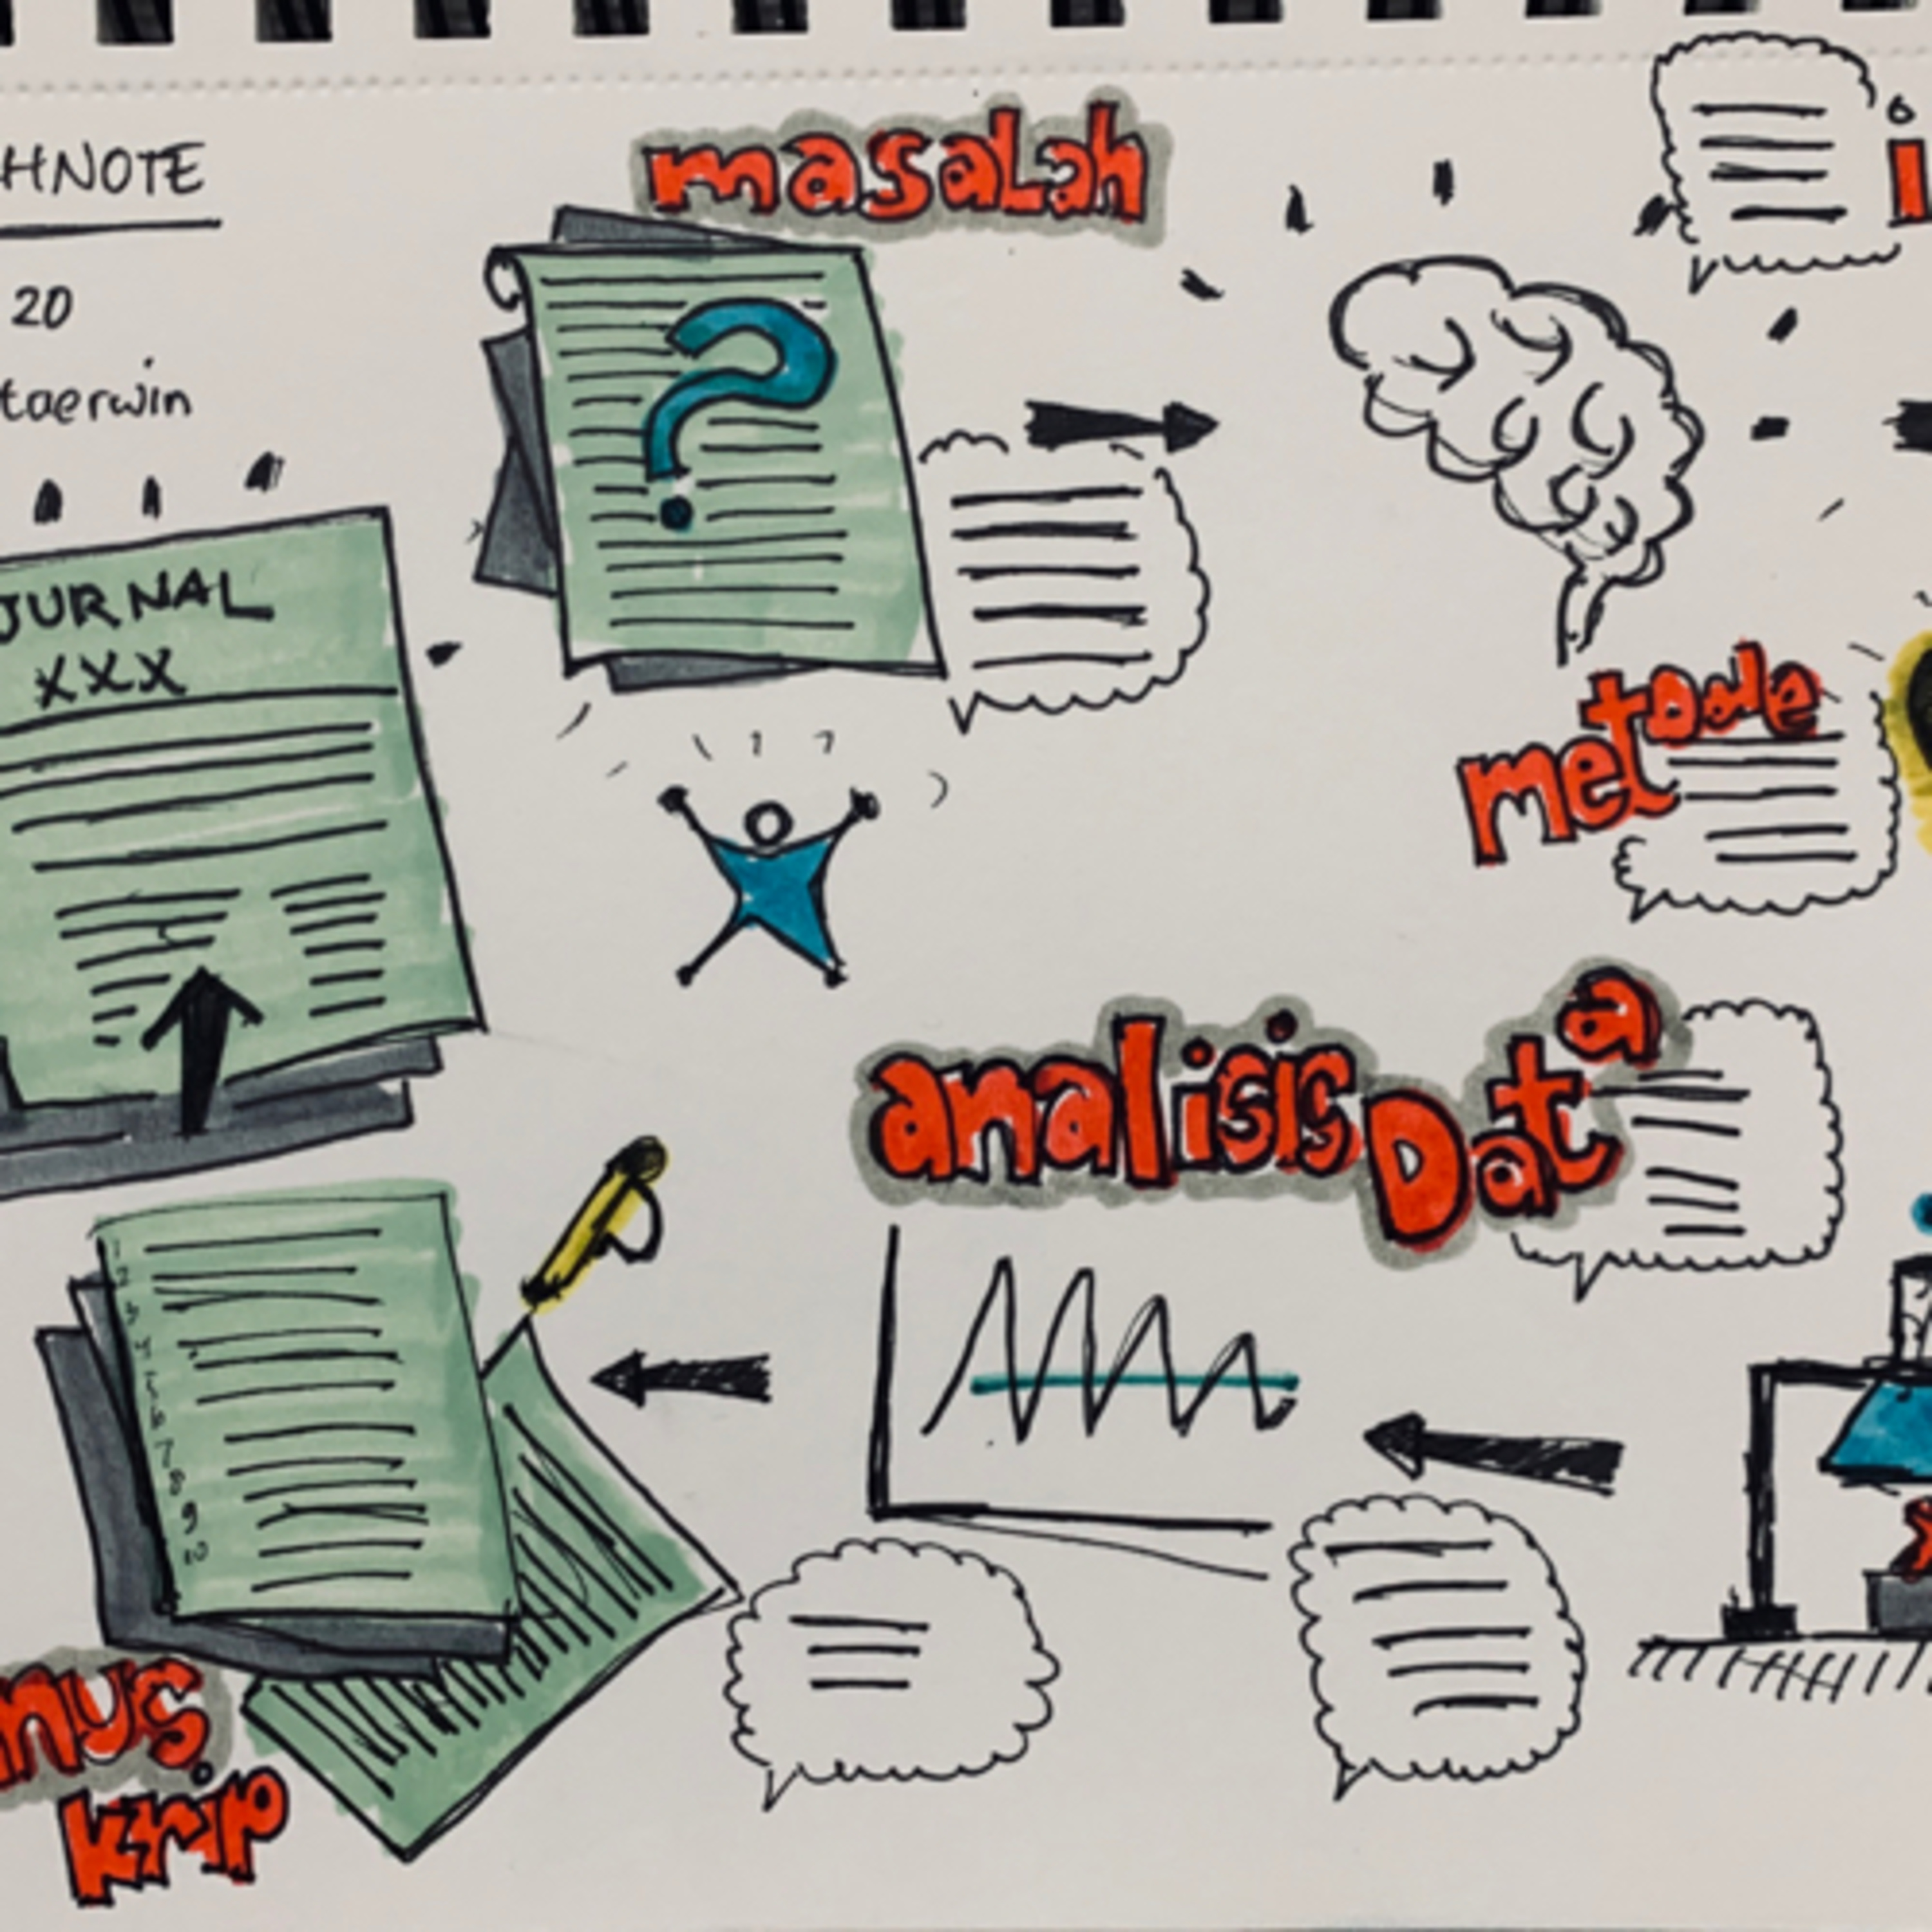 HNOTE
20
taerwin
masalah
i
JURNAL
XXX
metode
analisis Data
1
2
3
4
5
6
7
8
9
10
nus
krip